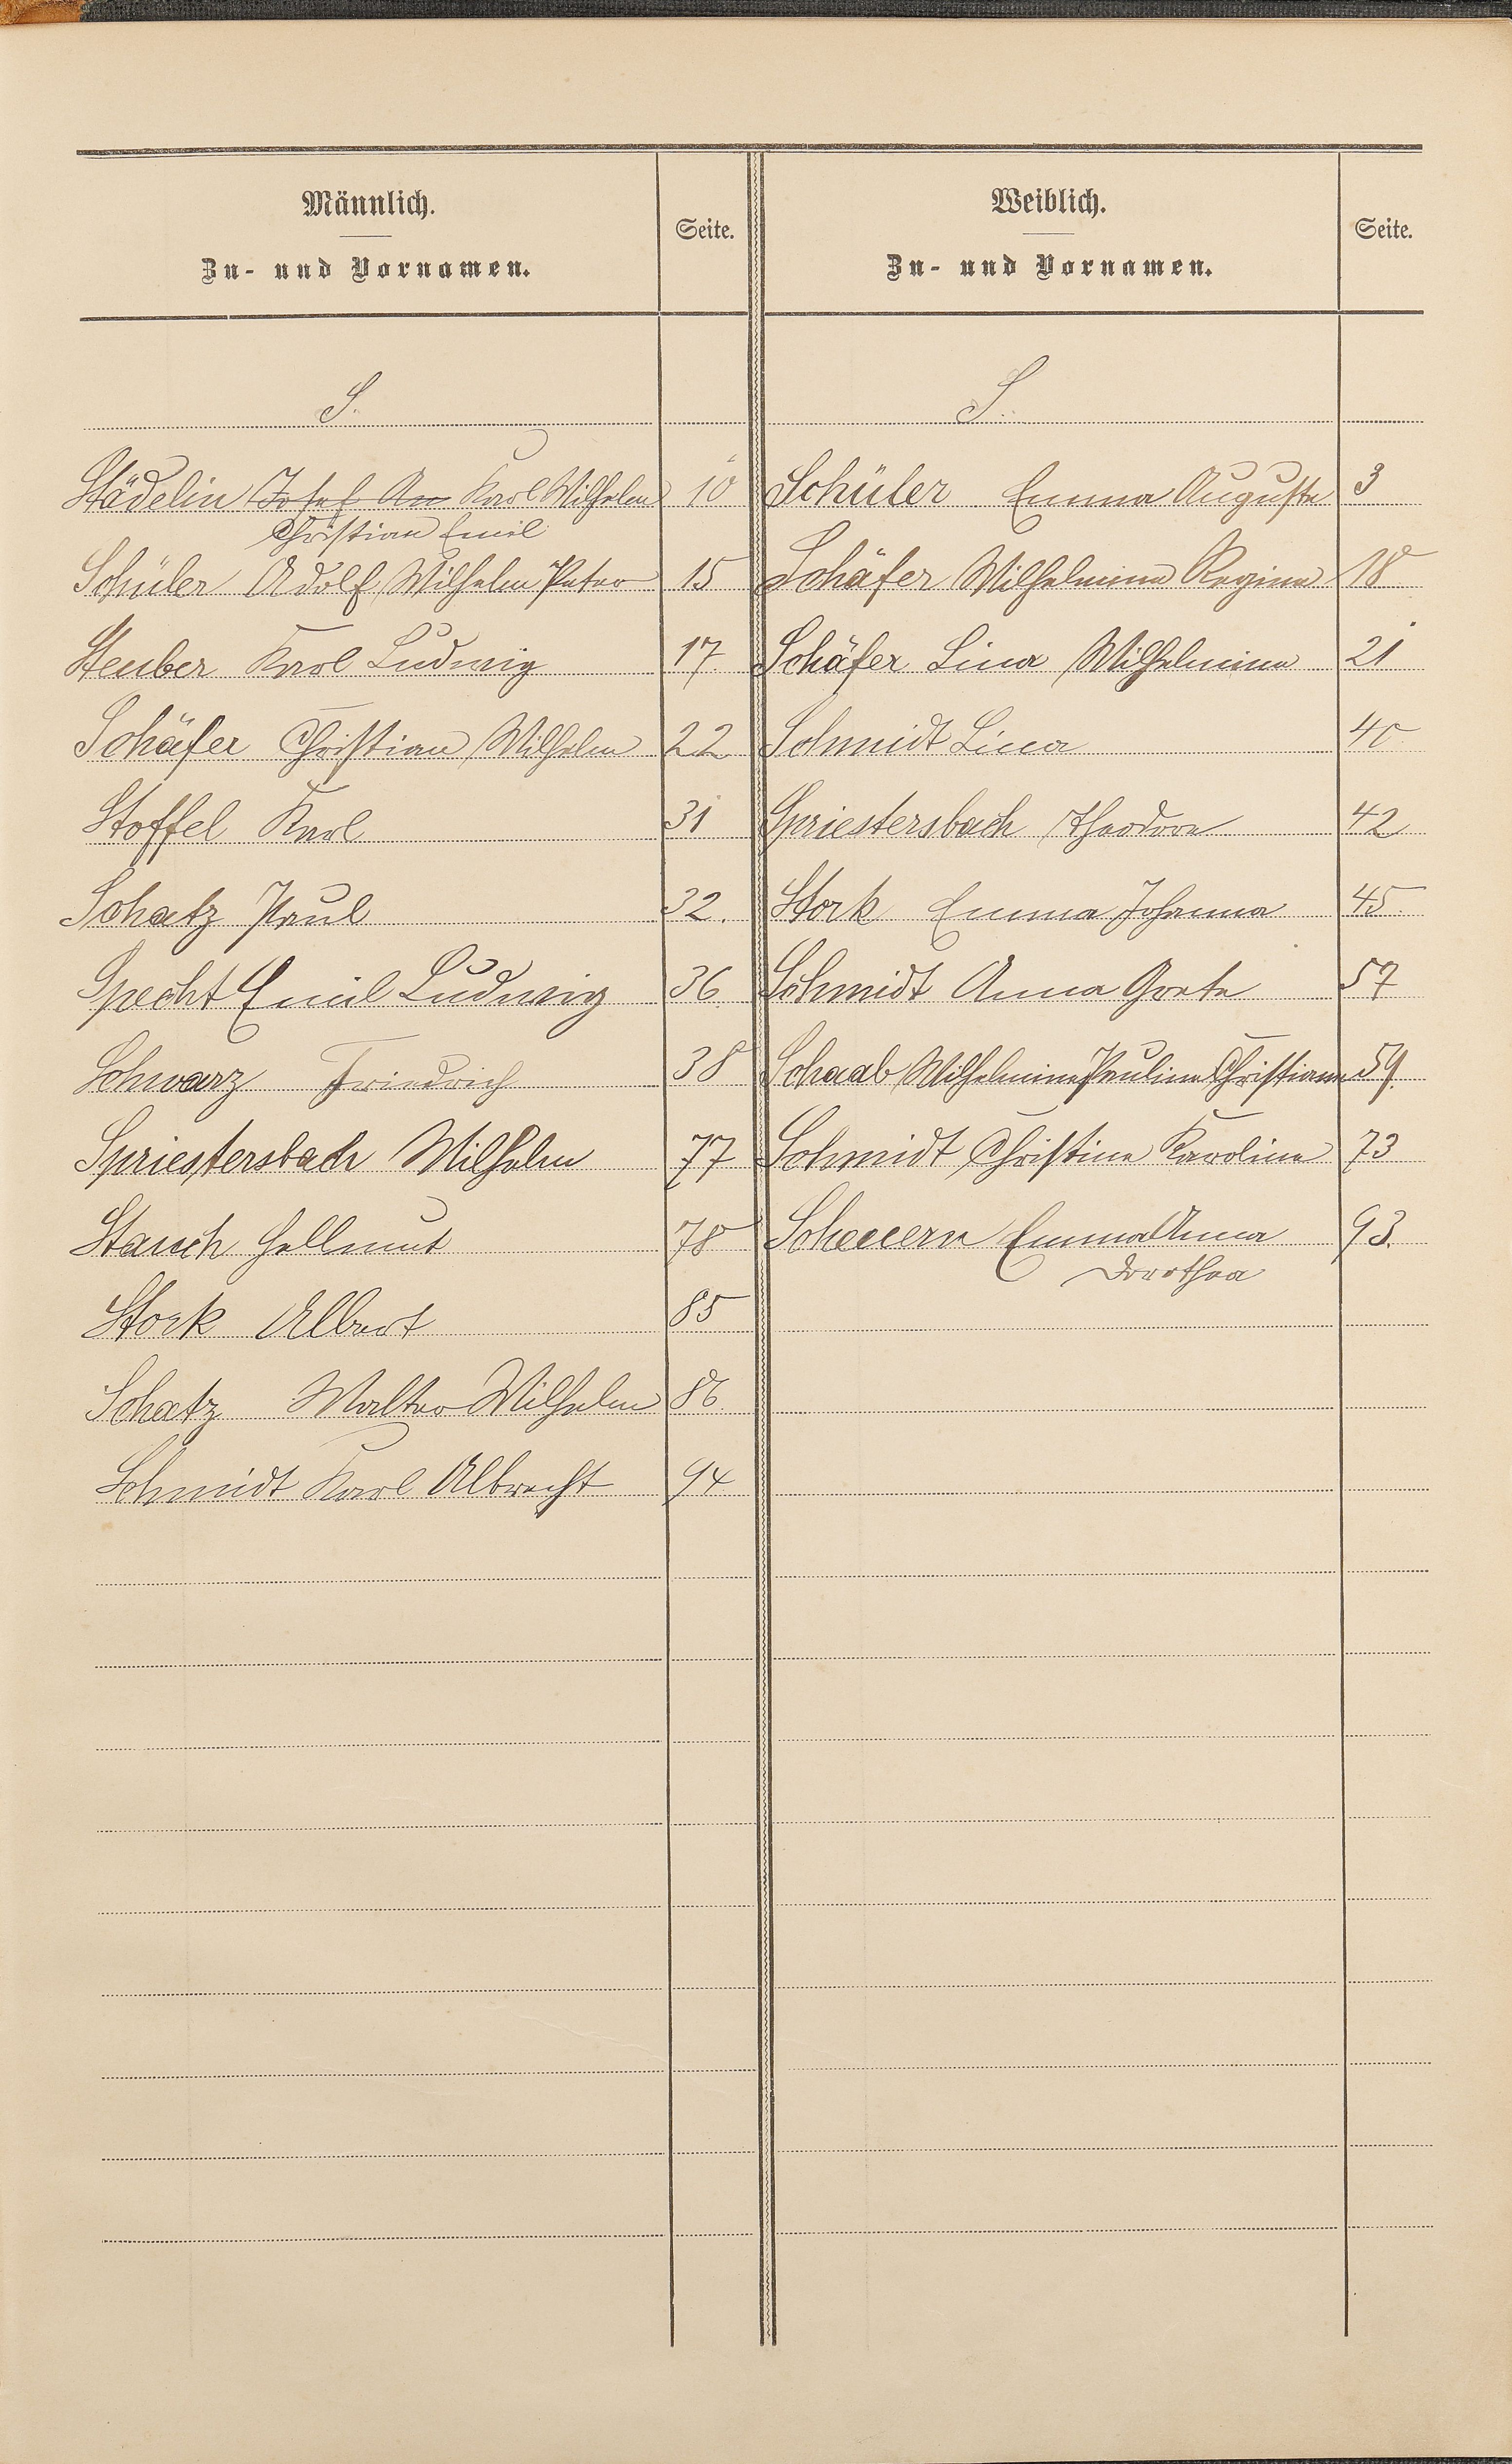 Männlich.
Zu- und Vornamen.
Seite.
Weiblich.
Zu- und Vornamen.
Seite.
S.
S.
Städelin Josef An Karl Wilhelm 10
Christian Emil
Schüler Adolf Wilhelm Peter 15
Steuber Karl Ludwig 17
Schäfer Christian Wilhelm 22
Stoffel Karl 31
Schatz Paul 32.
Specht Emil Ludwig 36
Schwarz Friedrich 38
Spriestersbach Wilhelm 77
Stauch Hellmut 78
Stork Albert 85
Schatz Walter Wilhelm 86
Schmidt Karl Albrecht 94
Schüler Emma Auguste 3
Schäfer Wilhelmine Regine 18
Schäfer Lina Wilhelmine 21
Schmidt Lina 40
Spriestersbach Theodore 42
Stork Emma Johanna 45
Schmidt Anna Grete 57
Schaab Wilhelmine Pauline Christiane 59.
Schmidt Christine Karoline 73
Scheuern Emma Anna 93.
Dorothea